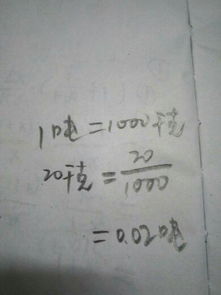 1吨=1000千克
20千克=20/1000
=0.020吨